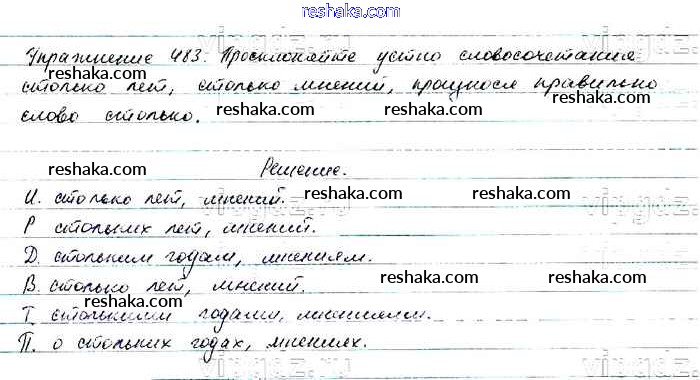 reshaka.com
Упражнение 483. Просклоняйте устно словосочетания
reshaka.com reshaka.com
столько лет, столько мнений, произнося правильно
reshaka.com reshaka.com
слово столько.
reshaka.com Решение. reshaka.com
И. столько лет, мнений. reshaka.com reshaka.com
Р стольких лет, мнений.
Д. стольким годам, мнениям.
reshaka.com reshaka.com
В. столько лет, мнений.
reshaka.com
Т. столькими годами, мнениями.
П. о стольких годах, мнениях. reshaka.com